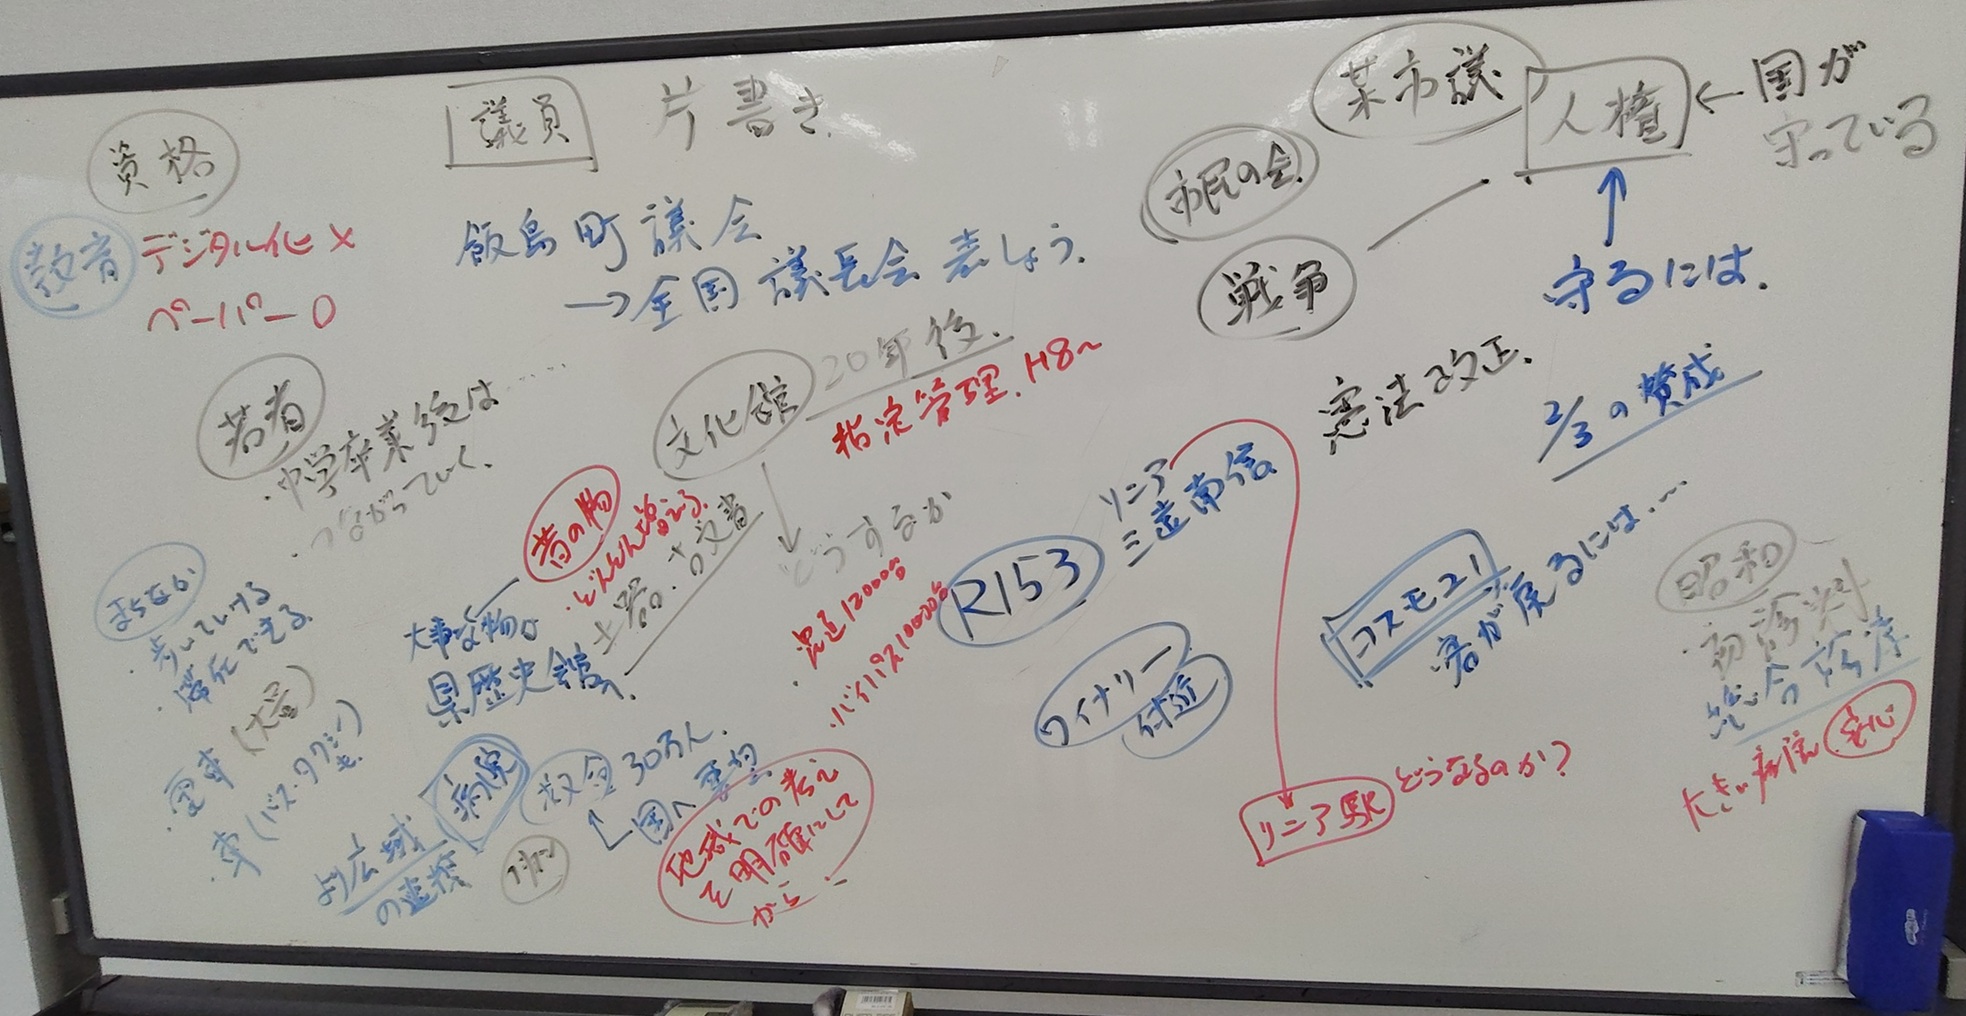 資格
議員 片書き
教育 デジタル化 ×
ペーパー ○
飯島町議会
→全国議長会表しょう.
某市議
人権 ← 国が
守っている
市民の会.
戦争
↑
守るには.
憲法改正.
2/3の賛成
若者
・中学卒業後は……
・つながっていく.
文化館 20年後.
指定管理. H8〜
↓
どうするか
昔の物
・どんどん増える.
土器.古文書
大事な物は
県歴史館へ.
まちなか
・歩いていける
・滞在できる.
・電車(大量)
・車(バス・タクシーも
リニア
三遠南信
R153
・沿道12000台
・バイパス10000台
ワイナリー
付近
リニア駅 どうなるのか?
コスモ21
客が戻るには…
昭和
・初診料
総合診療
大きい病院 安心
病院
より広域
の連携
救命 30万人.
国へ要望
地域での考え
を明確にして
から